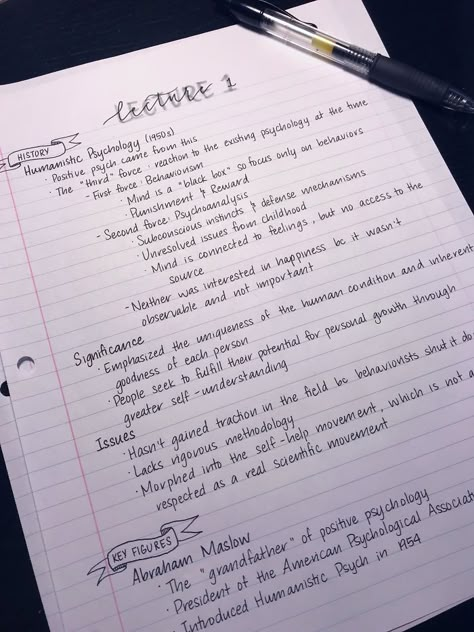 lecture 1
LECTURE
HISTORY
Humanistic Psychology (1950s)
· Positive psych came from this
· The "third" force; reaction to the existing psychology at the time
- First force: Behaviorism
· Mind is a "black box" so focus only on behaviors
· Punishment & Reward
- Second force: Psychoanalysis
· Subconscious instincts & defense mechanisms
· Unresolved issues from childhood
· Mind is connected to feelings, but no access to the
source
- Neither was interested in happiness bc it wasn't
observable and not important
Significance
· Emphasized the uniqueness of the human condition and inherent
goodness of each person
· People seek to fulfill their potential for personal growth through
greater self-understanding
Issues
· Hasn't gained traction in the field bc behaviorists shut it do
· Lacks rigorous methodology
· Morphed into the self-help movement, which is not a
respected as a real scientific movement
KEY FIGURES
Abraham Maslow
· The "grandfather" of positive psychology
· President of the American Psychological Associat
· Introduced Humanistic Psych in 1954